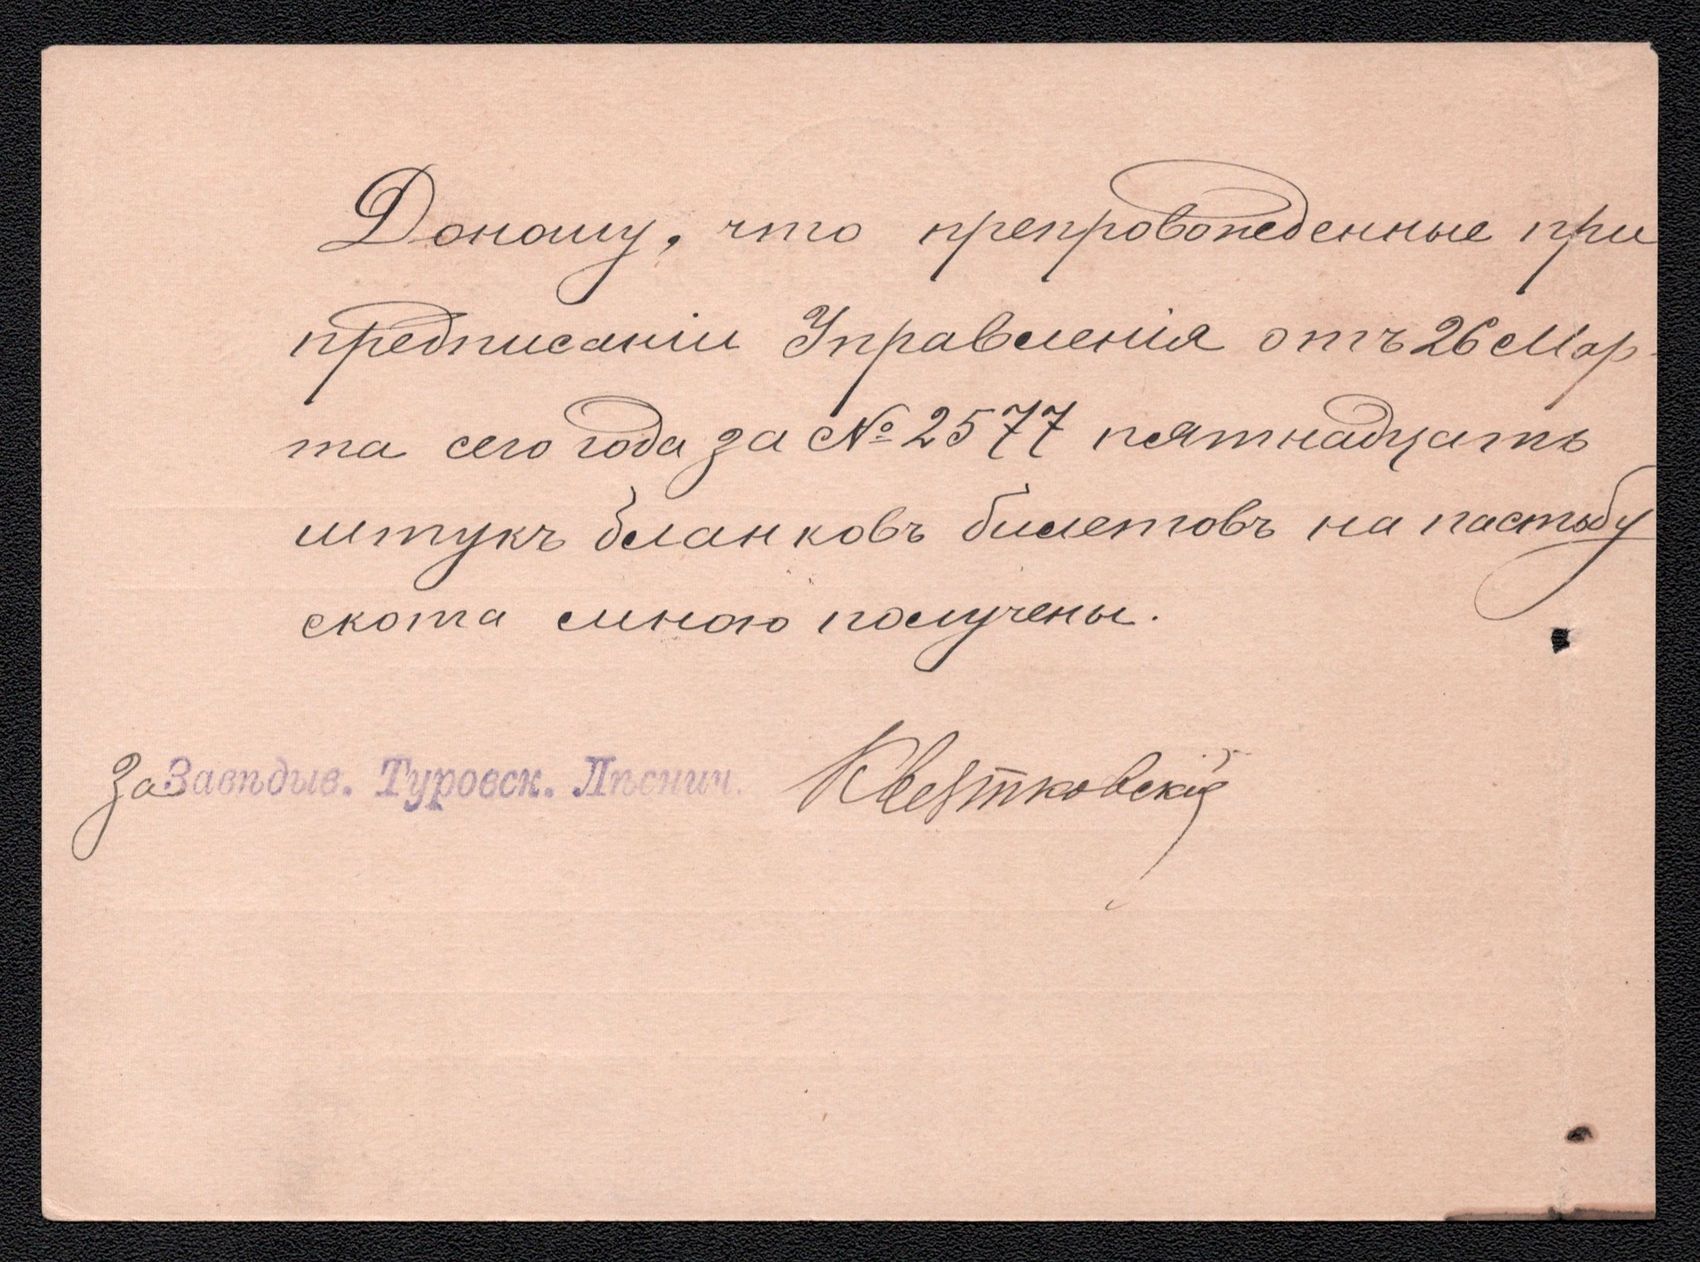 Доношу, что препровожденные при
предписаніи Управленія отъ 26 Мар-
та сего года за № 2577 пятнадцать
штукъ бланковъ билетовъ на пастьбу
скота мною получены.
За Завѣдыв. Туровск. Лѣснич. Квятковскій